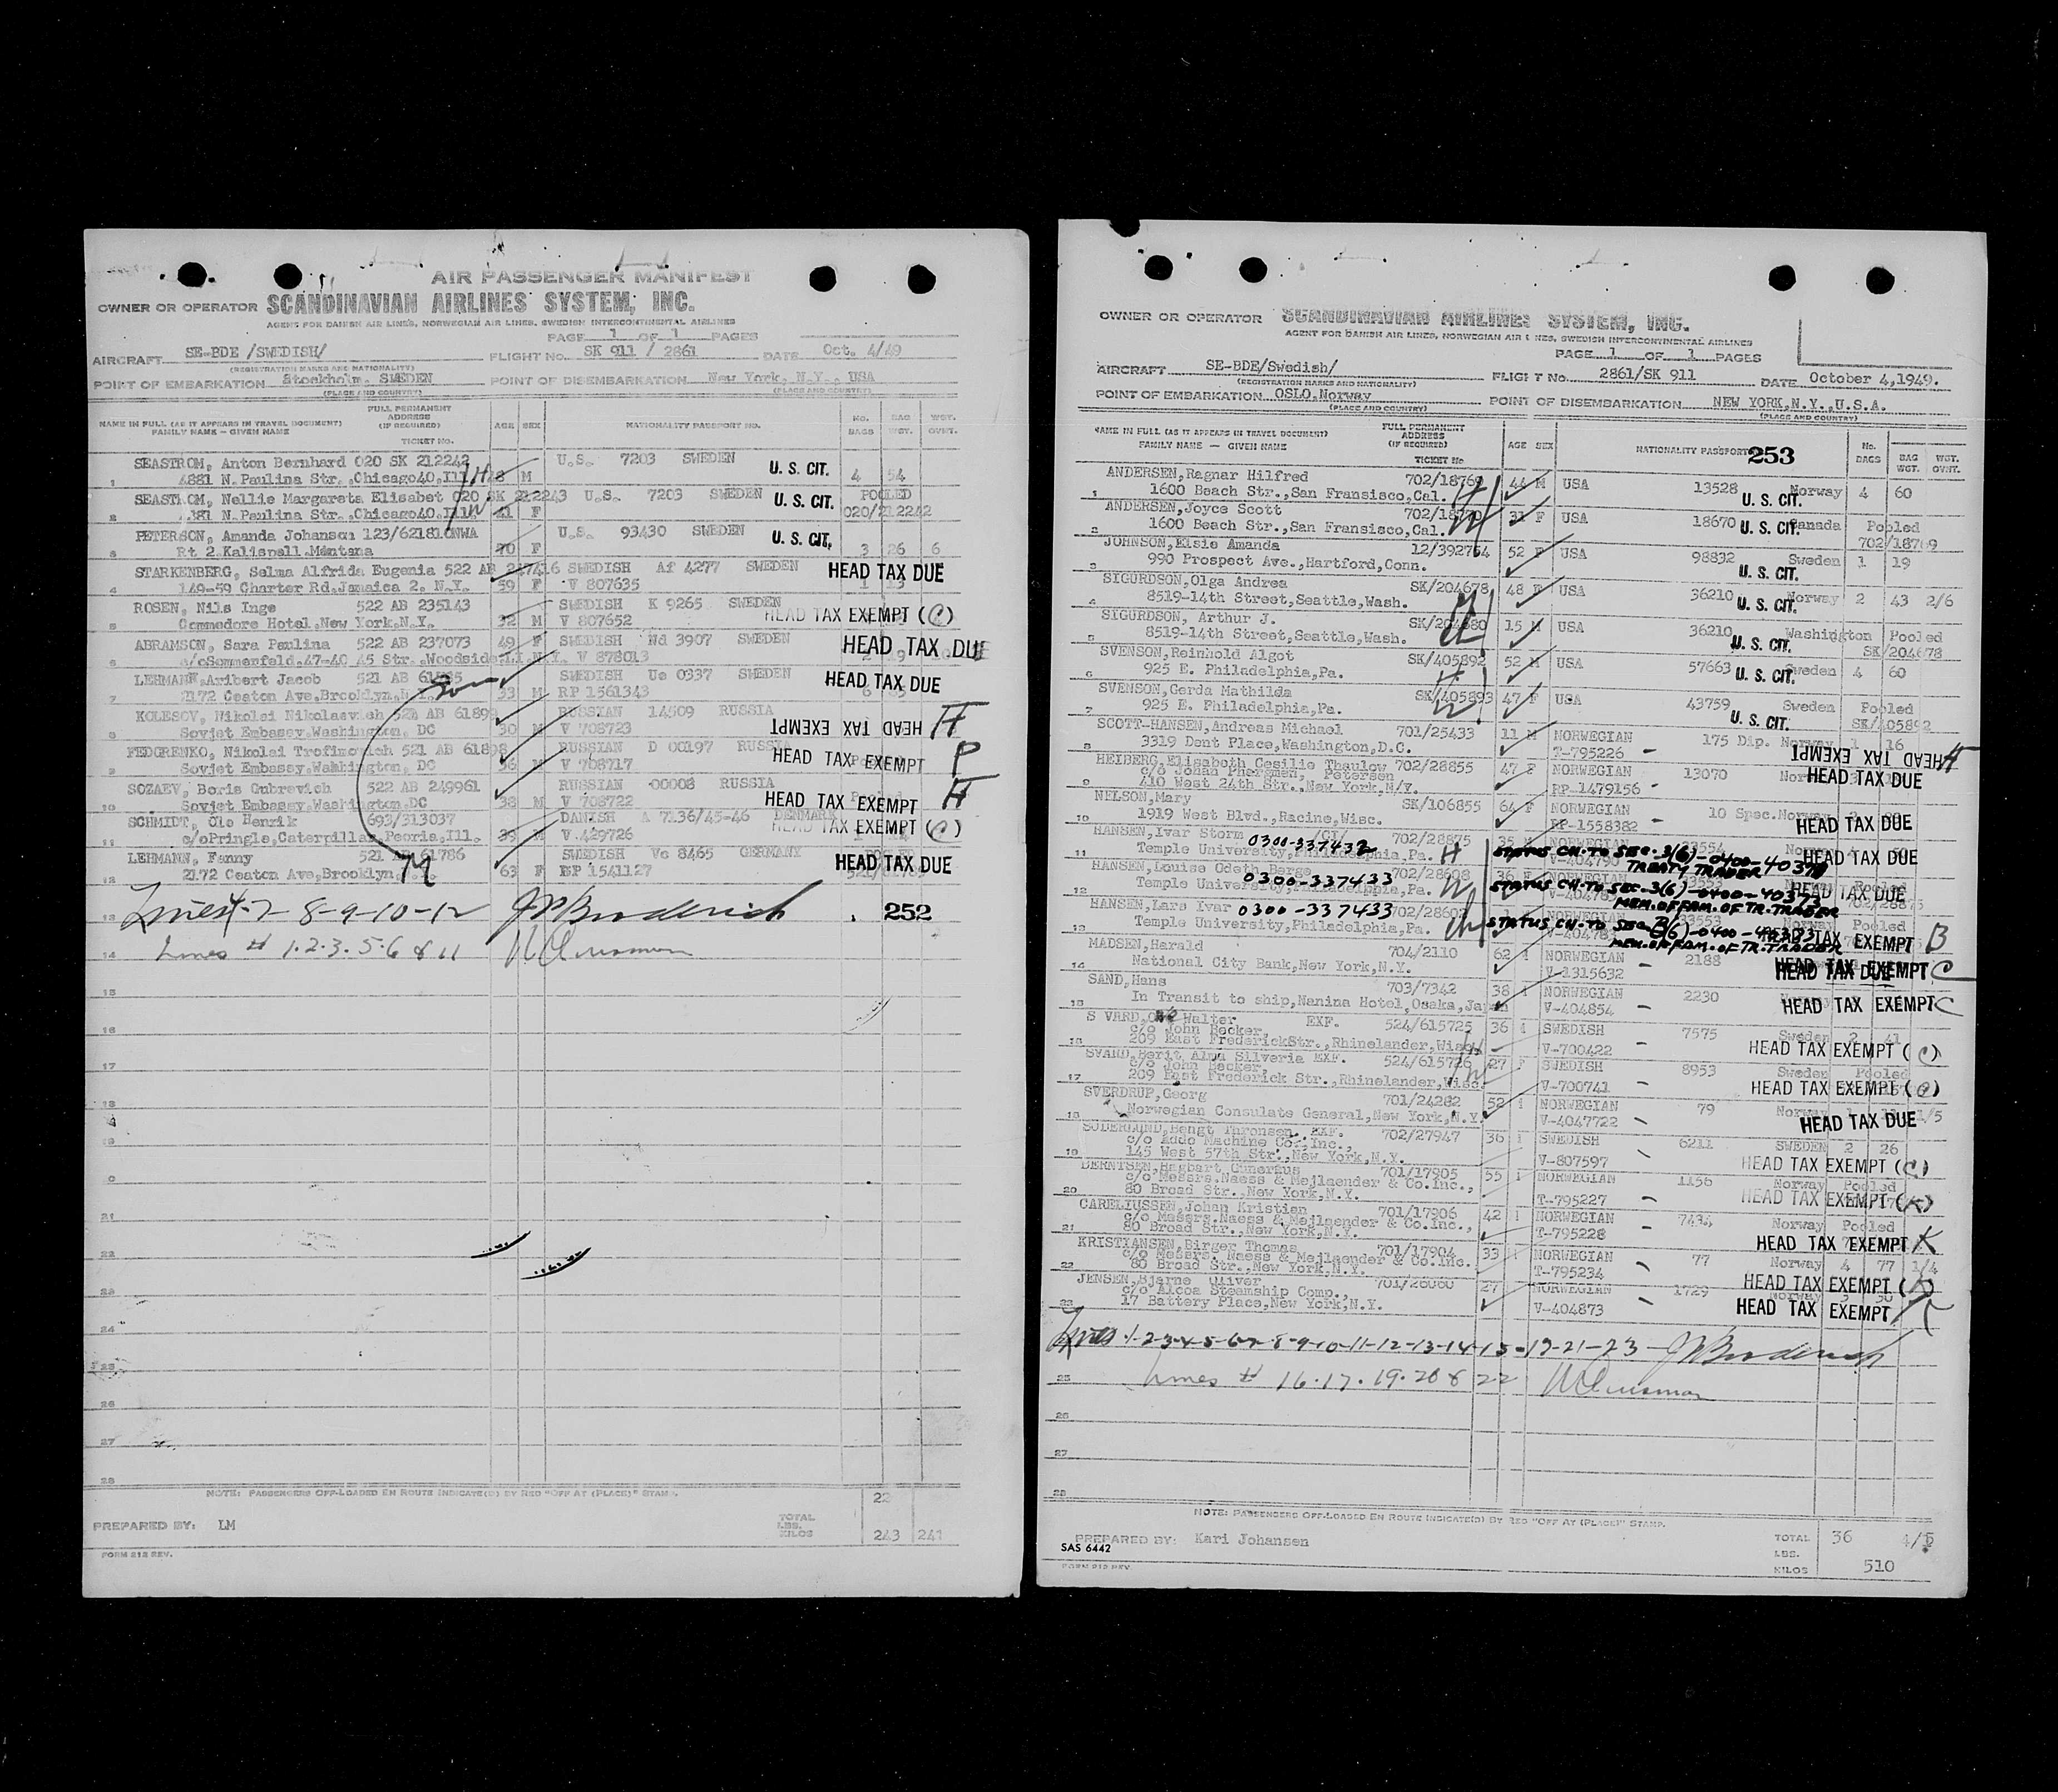 AIR PASSENGER MANIFEST
OWNER OR OPERATOR SCANDINAVIAN AIRLINES SYSTEM, INC.
AGENT FOR DANISH AIR LINES, NORWEGIAN AIR LINES, SWEDISH INTERCONTINENTAL AIRLINES
PAGE 1 OF 1 PAGES
AIRCRAFT SE-BDE /SWEDISH/ FLIGHT No. SK 911 / 2861 DATE Oct. 4/49
(REGISTRATION MARKS AND NATIONALITY)
POINT OF EMBARKATION Stockholm, SWEDEN POINT OF DISEMBARKATION New York, N.Y., USA
(PLACE AND COUNTRY) (PLACE AND COUNTRY)
NAME IN FULL (AS IT APPEARS IN TRAVEL DOCUMENT) FAMILY NAME — GIVEN NAME FULL PERMANENT ADDRESS (IF REQUIRED) TICKET No. AGE SEX NATIONALITY PASSPORT NO. No. BAGS BAG WGT. WGT. OVWT.
SEASTROM, Anton Bernhard 020 SK 212242 U.S. 7203 SWEDEN U. S. CIT.
1 4881 N.Paulina Str.,Chicago40,Ill H 48 M 4 54
SEASTROM, Nellie Margareta Elisabet 020 SK 212243 U.S. 7203 SWEDEN U. S. CIT. POOLED
2 4881 N.Paulina Str.,Chicago40,Ill W 41 F 020/212242
PETERSON, Amanda Johanson 123/621810NWA U.S. 93430 SWEDEN U. S. CIT.
3 Rt 2 Kalispell.Montana 70 F 3 26 6
STARKENBERG, Selma Alfrida Eugenia 522 AB 247416 SWEDISH Af 4277 SWEDEN HEAD TAX DUE
4 149-59 Charter Rd.Jamaica 2. N.Y. 59 F V 807635 1 13
ROSEN, Nils Inge 522 AB 235143 SWEDISH K 9265 SWEDEN HEAD TAX EXEMPT (C)
5 Commodore Hotel,New York,N.Y. 32 M V 807652
ABRAMSON, Sara Paulina 522 AB 237073 49 F SWEDISH Nd 3907 SWEDEN HEAD TAX DUE
6 c/oSommerfeld.47-40 45 Str.,Woodside.L.I.N.Y. V 878013 19
LEHMANN,Aribert Jacob 521 AB SWEDISH Ue 0337 SWEDEN HEAD TAX DUE
7 2172 Ceaton Ave,Brooklyn,N.Y. son 33 M RP 1561343
KOLESOV, Nikolei Nikolaevich 521 AB 61899 RUSSIAN 14509 RUSSIA HEAD TAX EXEMPT H
8 Sovjet Embassy.Washington, DC 30 M V 708723
FEDORENKO, Nikolai Trofimovich 521 AB 61898 RUSSIAN D 00197 RUSSIA HEAD TAX EXEMPT P
9 Sovjet Embassy,Washington, DC 36 M V 708717
SOZAEV, Boris Gubrevich 522 AB 249961 RUSSIAN 00008 RUSSIA HEAD TAX EXEMPT H
10 Sovjet Embassy,Washington,DC 38 M V 708722
SCHMIDT, Ole Henrik 693/313037 DANISH A 7136/45-46 DENMARK HEAD TAX EXEMPT (C)
11 c/oPringle,Caterpillar,Peoria,Ill. 39 M V.429726
LEHMANN, Fanny 521 AB 61786 SWEDISH Vc 8465 GERMANY HEAD TAX DUE
12 2172 Ceaton Ave,Brooklyn, M 63 F RP 1541127
13 Lines 4-7-8-9-10-12 J P Broderich 252
14 Lines # 1.2.3.5-6 & 11
15
16
17
18
19
21
22
23
24
25
26
27
28
NOTE: PASSENGERS OFF-LOADED EN ROUTE INDICATE(D) BY RED "OFF AT (PLACE)" STAMP. 22
PREPARED BY: LM TOTAL LBS. KILOS 243 241
FORM 212 REV.
OWNER OR OPERATOR SCANDINAVIAN AIRLINES SYSTEM, INC.
AGENT FOR DANISH AIR LINES, NORWEGIAN AIR LINES, SWEDISH INTERCONTINENTAL AIRLINES
PAGE 1 OF 1 PAGES
AIRCRAFT SE-BDE/Swedish/ FLIGHT No. 2861/SK 911 DATE October 4,1949.
(REGISTRATION MARKS AND NATIONALITY)
POINT OF EMBARKATION OSLO.Norway POINT OF DISEMBARKATION NEW YORK,N.Y.,U.S.A.
(PLACE AND COUNTRY) (PLACE AND COUNTRY)
NAME IN FULL (AS IT APPEARS IN TRAVEL DOCUMENT) FAMILY NAME — GIVEN NAME FULL PERMANENT ADDRESS (IF REQUIRED) TICKET No AGE SEX NATIONALITY PASSPORT 253 No. BAGS BAG WGT. WGT. OVWT.
ANDERSEN,Ragnar Hilfred 702/18769 44 M USA 13528 Norway 4 60
1 1600 Beach Str.,San Fransisco,Cal. H U. S. CIT.
ANDERSEN,Joyce Scott 702/18770 31 F USA 18670 U. S. CIT. Canada Pooled
2 1600 Beach Str.,San Fransisco,Cal. W 702/18769
JOHNSON,Elsie Amanda 12/392754 52 F USA 98832 Sweden 1 19
3 990 Prospect Ave.,Hartford,Conn. U. S. CIT.
SIGURDSON,Olga Andrea SK/204678 48 F USA 36210 Norway 2 43 2/6
4 8519-14th Street,Seattle,Wash. U. S. CIT.
SIGURDSON, Arthur J. SK/204680 15 M USA 36210 Washington Pooled
5 8519-14th Street,Seattle,Wash. U. S. CIT. SK/204678
SVENSON,Reinhold Algot SK/405892 52 M USA 57663 Sweden 4 60
6 925 E. Philadelphia,Pa. H U. S. CIT.
SVENSON,Gerda Mathilda SK/405893 47 F USA 43759 Sweden Pooled
7 925 E. Philadelphia,Pa. W U. S. CIT. SK/405892
SCOTT-HANSEN,Andreas Michael 701/25433 11 M NORWEGIAN 175 Dip. Norway 1 16
8 3319 Dent Place,Washington,D.C. T-795226 HEAD TAX EXEMPT H
HEIBERG,Elisabeth Cesilie Thaulow 702/28855 47 F NORWEGIAN 13070 HEAD TAX DUE
c/o Johan Petersen
9 410 West 24th Str.,New York,N/Y. RP-1479156
NELSON,Mary SK/106855 64 F NORWEGIAN 10 Spec.Norway
10 1919 West Blvd.,Racine,Wisc. RP-1558382 HEAD TAX DUE
HANSEN,Ivar Storm 0300-337432 702/28875 35
11 Temple University,Philadelphia,Pa. H V-404790 STATUS CH. TO SEC. 3(6)-0400-40378 TREATY TRADER HEAD TAX DUE
HANSEN,Louise Odeth Berge 0300-337433 702/28608 36
12 Temple University,Philadelphia,Pa. W STATUS CH. TO SEC-3(6)-0400-40373 MEM. OF FAM. OF TR. TRADER HEAD TAX DUE
HANSEN,Lars Ivar 0300-337433 NORWEGIAN 33553 Pooled
13 Temple University,Philadelphia,Pa. V-404783 STATUS CH TO SEC 3(6)-0400- MEM. OF FAM. OF TR. TRADER HEAD TAX EXEMPT B
MADSEN,Harald 704/2110 62 NORWEGIAN 2188
14 National City Bank,New York,N.Y. V-1315632 HEAD TAX EXEMPT C
SAND,Hans 703/7342 38 NORWEGIAN 2230
15 In Transit to ship,Nanina Hotel,Osaka,Japan V-404854 HEAD TAX EXEMPT C
SVARD, Walter EXF. 524/615725 36 SWEDISH 7575 Sweden 2 41
c/o John Becker,
16 209 East FrederickStr.,Rhinelander,Wisc. H V-700422 HEAD TAX EXEMPT (C)
SVARD,Berit Alma Silveria EXF. 524/615726 27 F SWEDISH 8953 Sweden Pooled
c/o John Becker,
17 209 East Frederick Str.,Rhinelander,Wisc. W V-700741 HEAD TAX EXEMPT (C)
SVERDRUP,Georg 701/24282 52 NORWEGIAN 79 Norway 1/5
18 Norwegian Consulate General,New York,N.Y. V-4047722 HEAD TAX DUE
SODERLUND,Bengt Thronsen EXF. 702/27947 36 SWEDISH 6211 SWEDEN 2 26
c/o Addo Machine Co.,Inc.,
19 145 West 57th Str.,New York,N.Y. V-807597 HEAD TAX EXEMPT (C)
BERNTSEN,Hagbart Cuneraus 701/17905 55 NORWEGIAN 1156 Norway Pooled
c/o Messrs.Naess & Mejlaender & Co.Inc.,
20 80 Broad Str.,New York,N.Y. T-795227 HEAD TAX EXEMPT (K)
CARELIUSSEN,Johan Kristian 701/17906 42 NORWEGIAN 7434 Norway Pooled
c/o Messrs.Naess & Mejlaender & Co.Inc.,
21 80 Broad Str.,New York,N.Y. T-795228 HEAD TAX EXEMPT K
KRISTIANSEN,Birger Thomas 701/17904 33 NORWEGIAN 77 Norway 4 77 1/4
c/o Messrs. Naess & Mejlaender & Co.Inc.
22 80 Broad Str.,New York,N.Y. T-795234 HEAD TAX EXEMPT (K)
JENSEN,Bjarne Oliver 701/26060 27 NORWEGIAN 1729 Norway 3 30
c/o Alcoa Steamship Comp.,
23 17 Battery Place,New York,N.Y. V-404873 HEAD TAX EXEMPT K
Lines 1-2-3-4-5-6-7-8-9-10-11-12-13-14-15-18-21-23 J P Broderich
25 Lines # 16.17.19.20 & 22
26
27
28
NOTE: PASSENGERS OFF-LOADED EN ROUTE INDICATE(D) BY RED "OFF AT (PLACE)" STAMP.
PREPARED BY: Kari Johansen TOTAL 36 4/5
SAS 6442 LBS.
FORM 212 REV. KILOS 510